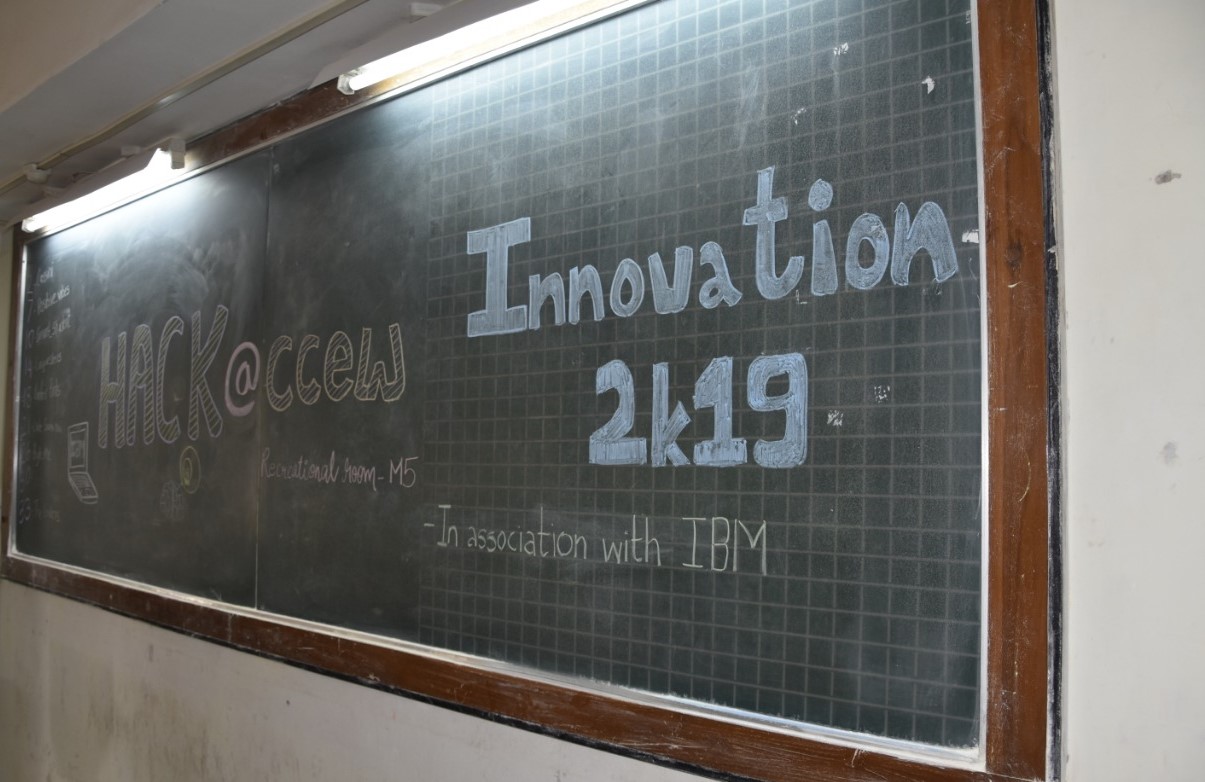 HACK@ccew
Recreational room - M5
Innovation
2k19
- In association with IBM